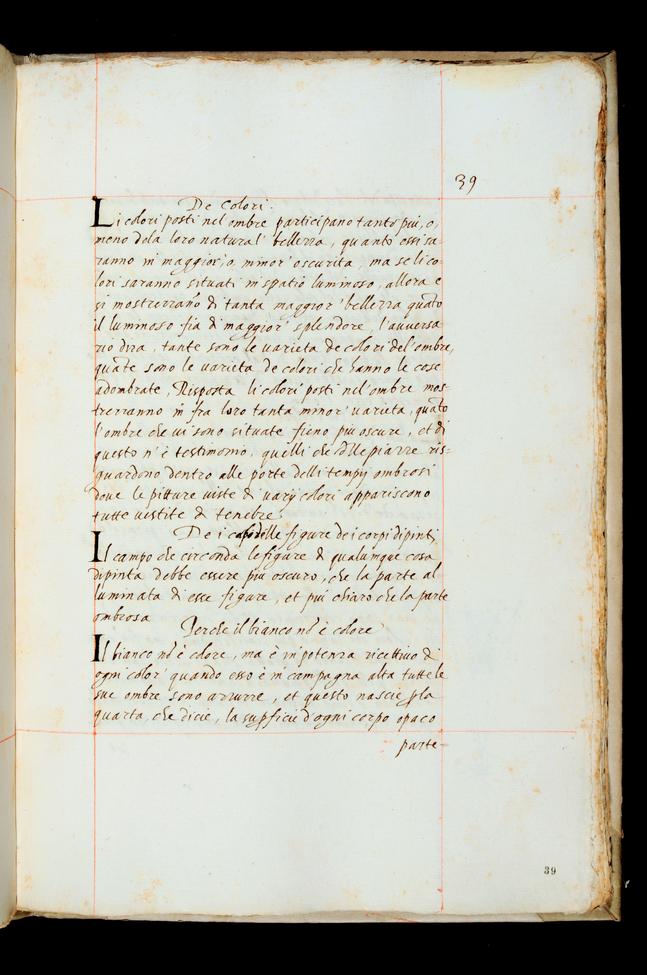 39
De Colori.
Li colori posti nel ombre participano tanto piu, o,
meno dela loro natural' bellezza, quanto essi sa
ranno in maggior, o minor' oscurita, ma se li co
lori saranno situati in spatio luminoso, allora e
si mostrerrano di tanta maggior' bellezza quãto
il luminoso fia di maggior' splendore, l'auuersa
rio dira, tante sono le varieta de colori del'ombre,
quãte sono le varieta de colori che hanno le cose
adombrate, Risposta li colori posti nel'ombre mos-
trerranno in fra loro tanta minor' varieta, quãto
l'ombre che vi sono situate fieno piu oscure, et di
questo n'è testimonio, quelli che dlle piazze ris-
guardono dentro alle porte delli tempij ombrosi
doue le pitture viste di varij colori appariscono
tutte vistite di tenebre.
De i delle figure de i corpi dipinti
Il campo che circonda le figure di qualumque cosa
dipinta debbe essere piu oscuro, che la parte al
luminata di esse figure, et piú chiaro che la parte
ombrosa
Perche il bianco nõ è colore
Il bianco nõ è colore, ma è in potenza ricettiuo di
ogni color' quando esso è in campagna alta tutte le
sue ombre sono azzurre, et questo nascie p la
quarta, che dicie, la supficie d'ogni corpo opaco
parte-
39